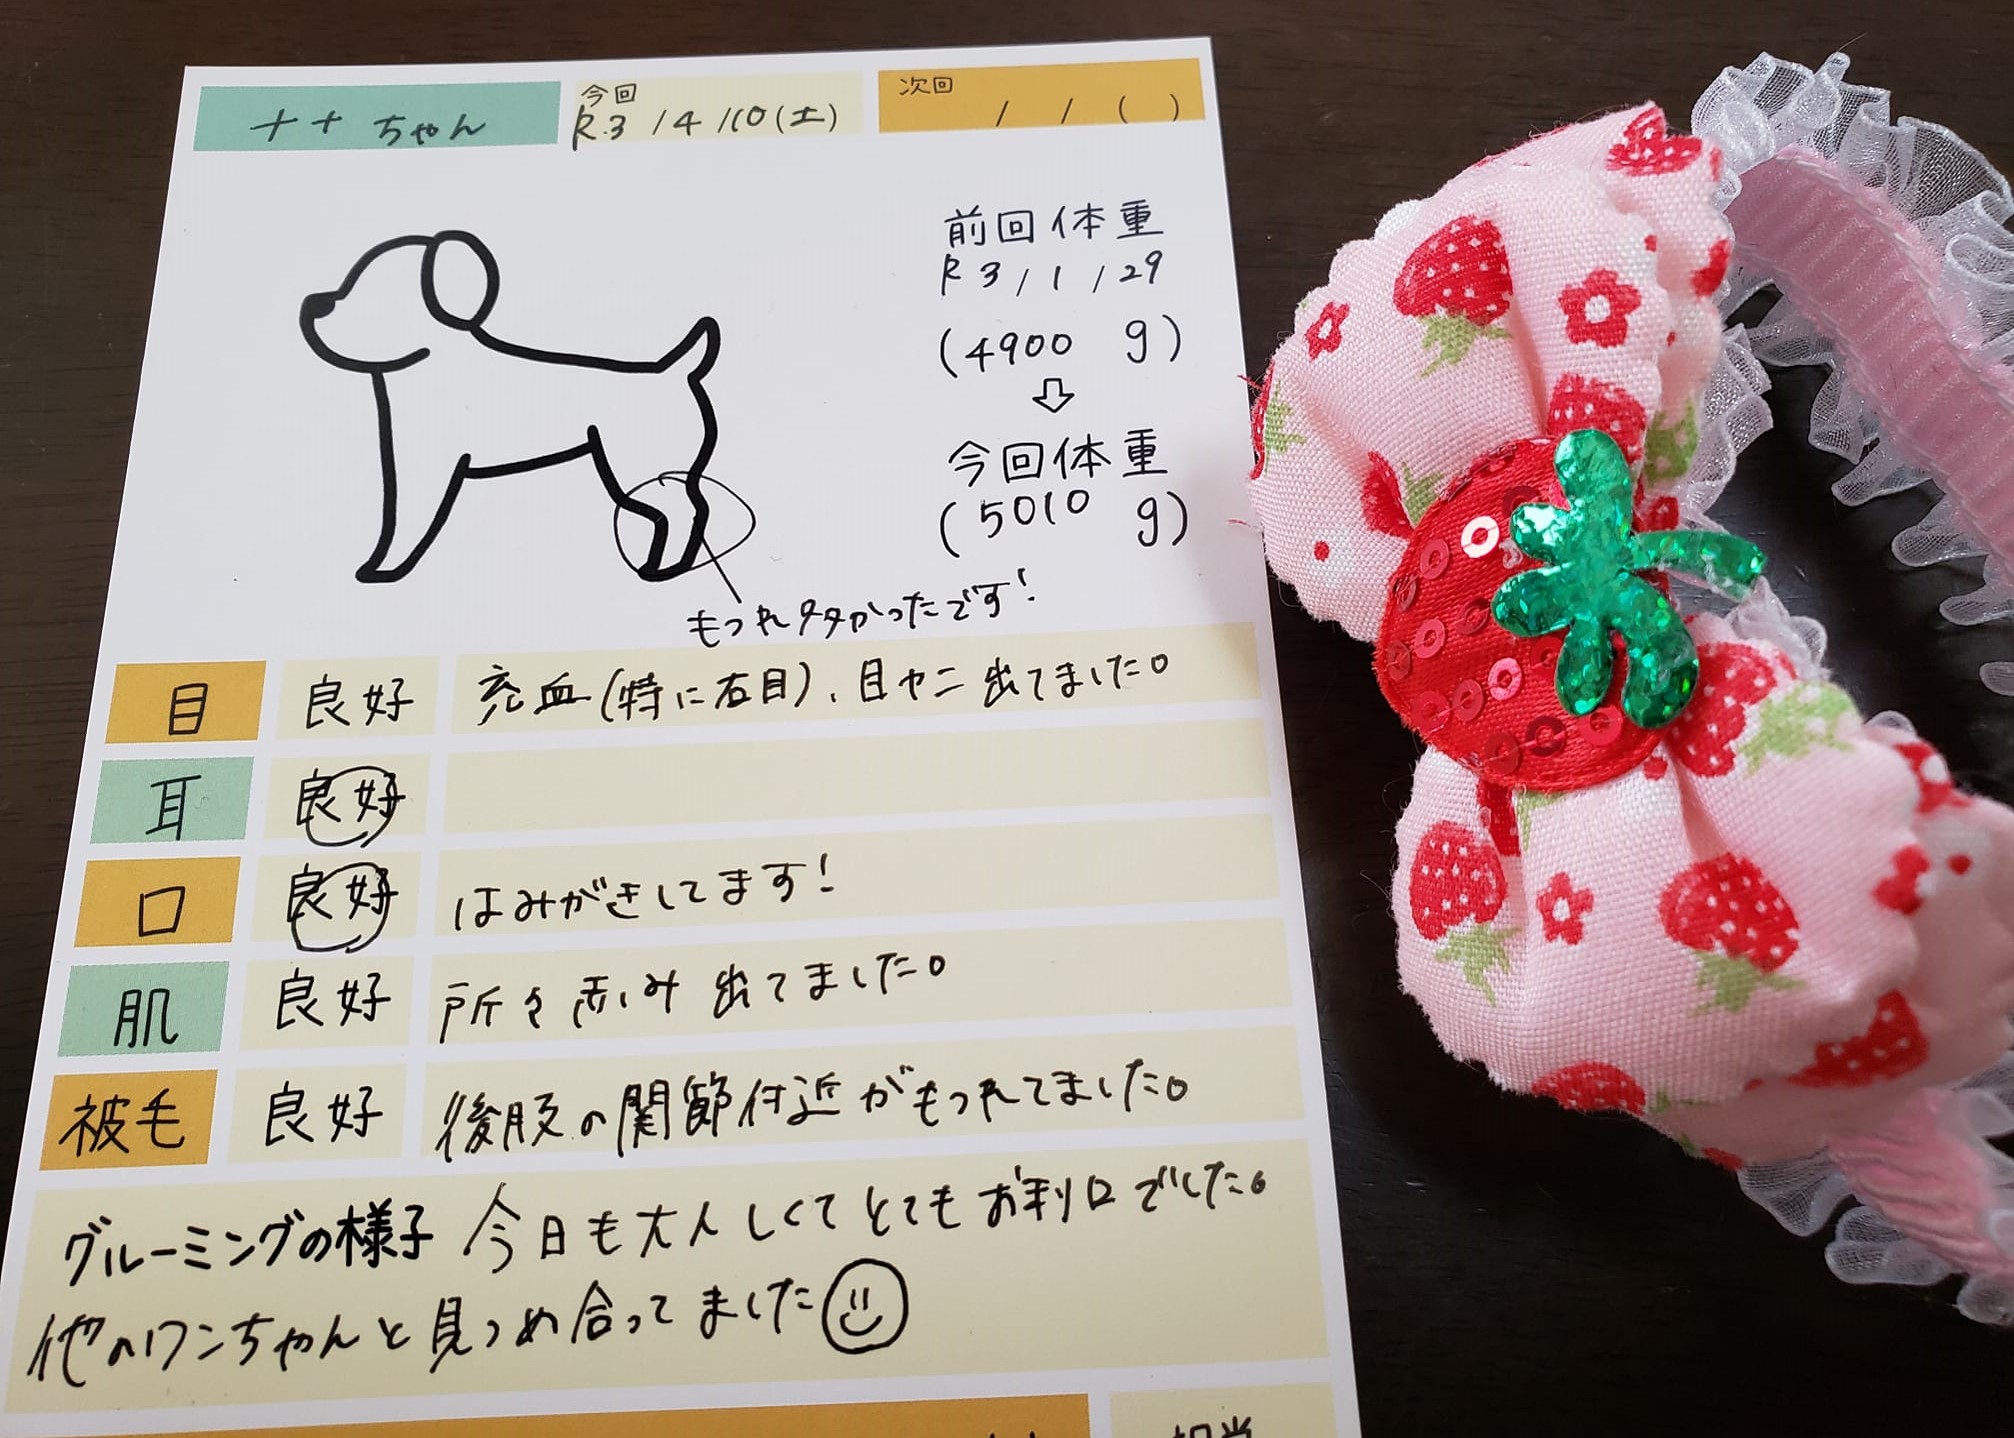 ナナちゃん
今回
R.3/4/10(土)
次回
/ / ( )
前回体重
R3/1/29
(4900 g)
今回体重
(5010 g)
もつれ多かったです!
目 良好 充血(特に右目)、目ヤニ出てました。
耳 良好
口 良好 はみがきしてます!
肌 良好 所々赤み出てました。
被毛 良好 後肢の関節付近がもつれてました。
グルーミングの様子 今日も大人しくてとてもお利口でした。
他のワンちゃんと見つめ合ってました
担当